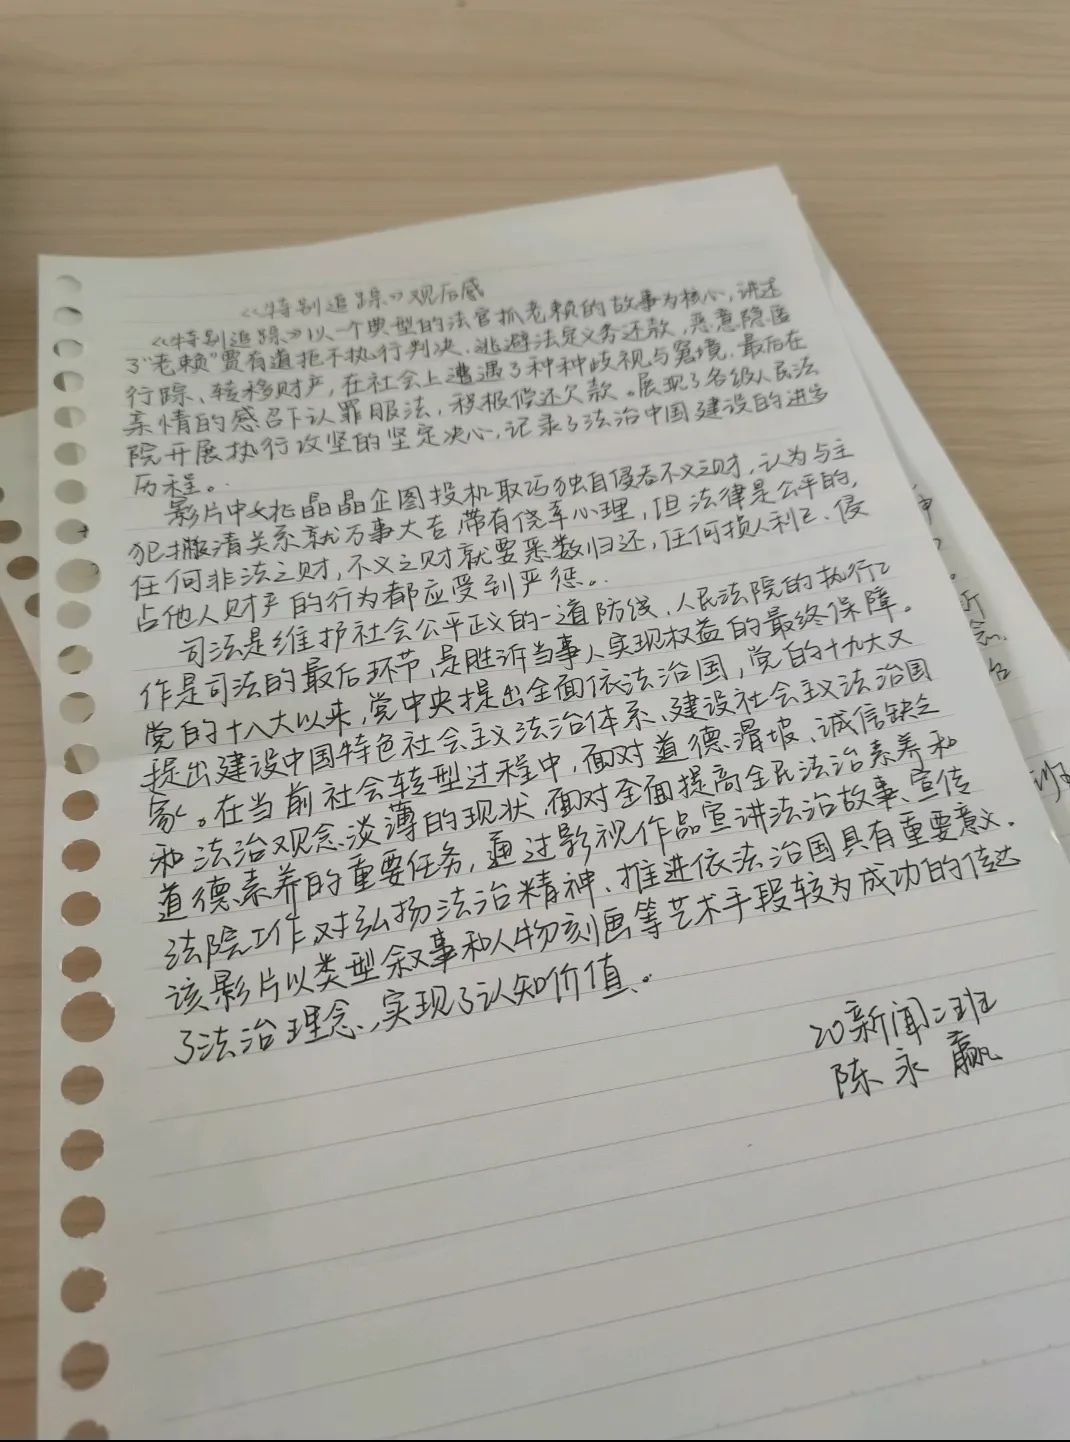 《特别追踪》观后感
《特别追踪》以一个典型的法官抓老赖的故事为核心,讲述
了"老赖"贾有道拒不执行判决、逃避法定义务还款,恶意隐匿
行踪、转移财产,在社会上遭遇了种种歧视与冤境,最后在
亲情的感召下认罪服法,积极偿还欠款。展现了各级人民法
院开展执行攻坚的坚定决心,记录了法治中国建设的进步
历程。
影片中女儿晶晶企图投机取巧独自侵吞不义之财,认为与主
犯撇清关系就万事大吉,带有侥幸心理,但法律是公平的,
任何非法之财,不义之财就要悉数归还,任何损人利己、侵
占他人财产的行为都应受到严惩。
司法是维护社会公平正义的一道防线,人民法院的执行工
作是司法的最后环节,是胜诉当事人实现权益的最终保障。
党的十八大以来,党中央提出全面依法治国,党的十九大又
提出建设中国特色社会主义法治体系、建设社会主义法治国
家。在当前社会转型过程中,面对道德滑坡、诚信缺乏
和法治观念淡薄的现状,面对全面提高全民法治素养和
道德素养的重要任务,通过影视作品宣讲法治故事、宣传
法院工作,对弘扬法治精神、推进依法治国具有重要意义。
该影片以类型叙事和人物刻画等艺术手段较为成功的传达
了法治理念,实现了认知价值。
20新闻二班
陈永赢
申
所
念
治
班